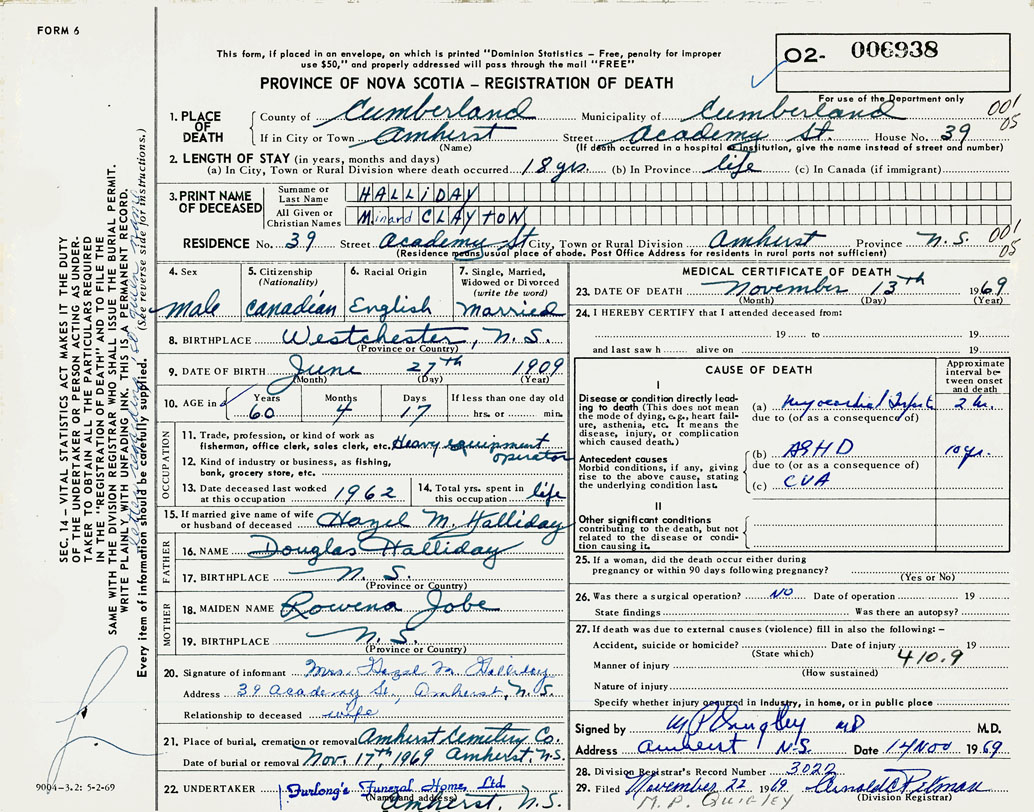 FORM 6
This form, if placed in an envelope, on which is printed "Dominion Statistics – Free, penalty for improper
use $50," and properly addressed will pass through the mail "FREE"
O2- 006938
PROVINCE OF NOVA SCOTIA – REGISTRATION OF DEATH
For use of the Department only
001
05
1. PLACE OF DEATH
County of Cumberland Municipality of Cumberland
If in City or Town Amherst Street Academy St. House No. 39
(Name) (If death occurred in a hospital or institution, give the name instead of street and number)
2. LENGTH OF STAY (in years, months and days)
(a) In City, Town or Rural Division where death occurred 18 yrs. (b) In Province life (c) In Canada (if immigrant)
3. PRINT NAME OF DECEASED
Surname or Last Name HALLIDAY
All Given or Christian Names Minard CLAYTON
RESIDENCE No. 39 Street Academy St City, Town or Rural Division Amherst Province N.S.
001
05
(Residence means usual place of abode. Post Office Address for residents in rural parts not sufficient)
4. Sex
male
5. Citizenship
(Nationality)
Canadian
6. Racial Origin
English
7. Single, Married,
Widowed or Divorced
(write the word)
Married
8. BIRTHPLACE Westchester, N.S.
(Province or Country)
9. DATE OF BIRTH June 27th 1909
(Month) (Day) (Year)
10. AGE in
Years Months Days If less than one day old
60 4 17 hrs. or min.
OCCUPATION
11. Trade, profession, or kind of work as
fisherman, office clerk, sales clerk, etc. Heavy equipment
operator
12. Kind of industry or business, as fishing,
bank, grocery store, etc.
13. Date deceased last worked
at this occupation 1962
14. Total yrs. spent in
this occupation life
15. If married give name of wife
or husband of deceased Hazel M. Halliday
FATHER
16. NAME Douglas Halliday
17. BIRTHPLACE N. S.
(Province or Country)
MOTHER
18. MAIDEN NAME Rowena Jobe
19. BIRTHPLACE N. S.
(Province or Country)
20. Signature of informant Mrs. Hazel M. Halliday
Address 39 Academy St., Amherst, N.S.
Relationship to deceased wife
21. Place of burial, cremation or removal Amherst Cemetery Co.
Date of burial or removal Nov. 17th, 1969 Amherst, N.S.
22. UNDERTAKER Furlong's Funeral Home, Ltd.
(Name and address) Amherst, N.S.
MEDICAL CERTIFICATE OF DEATH
23. DATE OF DEATH November 13th 1969
(Month) (Day) (Year)
24. I HEREBY CERTIFY that I attended deceased from:
19 to 19
and last saw h alive on 19
CAUSE OF DEATH
Approximate
interval be-
tween onset
and death
I
Disease or condition directly lead-
ing to death (This does not mean
the mode of dying, e.g., heart fail-
ure, asthenia, etc. It means the
disease, injury, or complication
which caused death.)
(a) Myocardial Infarct 2 hr.
due to (or as a consequence of)
Antecedent causes
Morbid conditions, if any, giving
rise to the above cause, stating
the underlying condition last.
(b) ASHD 10 yr.
due to (or as a consequence of)
(c) CVA
II
Other significant conditions
contributing to the death, but not
related to the disease or condi-
tion causing it.
25. If a woman, did the death occur either during
pregnancy or within 90 days following pregnancy?
(Yes or No)
26. Was there a surgical operation? NO Date of operation 19
State findings Was there an autopsy?
27. If death was due to external causes (violence) fill in also the following: –
Accident, suicide or homicide? Date of injury 19
(State which)
410.9
Manner of injury
(How sustained)
Nature of injury
Specify whether injury occurred in industry, in home, or in public place
Signed by M P Quigley MD M.D.
Address Amherst N.S. Date 14 Nov 1969
28. Division Registrar's Record Number 3022
29. Filed November 22 1969 Arnold Pitman
(Division Registrar)
M. P. QUIGLEY
SEC. 14 – VITAL STATISTICS ACT MAKES IT THE DUTY
OF THE UNDERTAKER OR PERSON ACTING AS UNDER-
TAKER TO OBTAIN ALL THE PARTICULARS REQUIRED
IN THE "REGISTRATION OF DEATH" AND TO FILE THE
SAME WITH THE DIVISION REGISTRAR WHO SHALL ISSUE THE BURIAL PERMIT.
WRITE PLAINLY WITH UNFADING INK. THIS IS A PERMANENT RECORD.
Every item of information should be carefully supplied. (See reverse side for instructions.)
Letter regarding given name
9004–3.2: 5-2-69